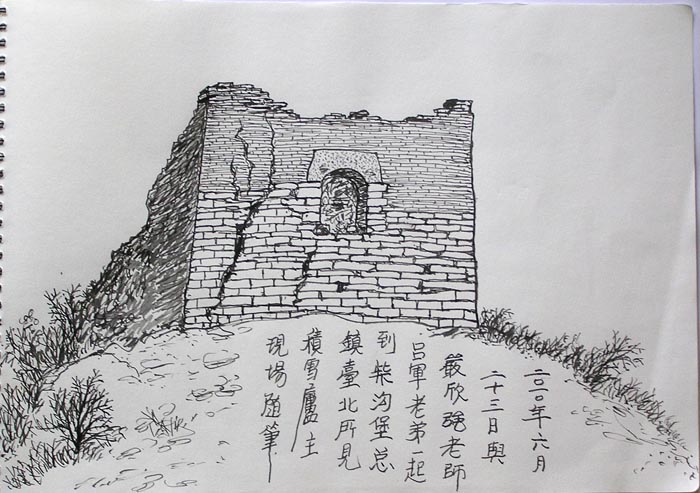 二〇一〇年六月
二十三日與
嚴欣強老師
吕軍老弟一起
到柴沟堡总
鎮臺北所見
積雪廬主
現場随筆